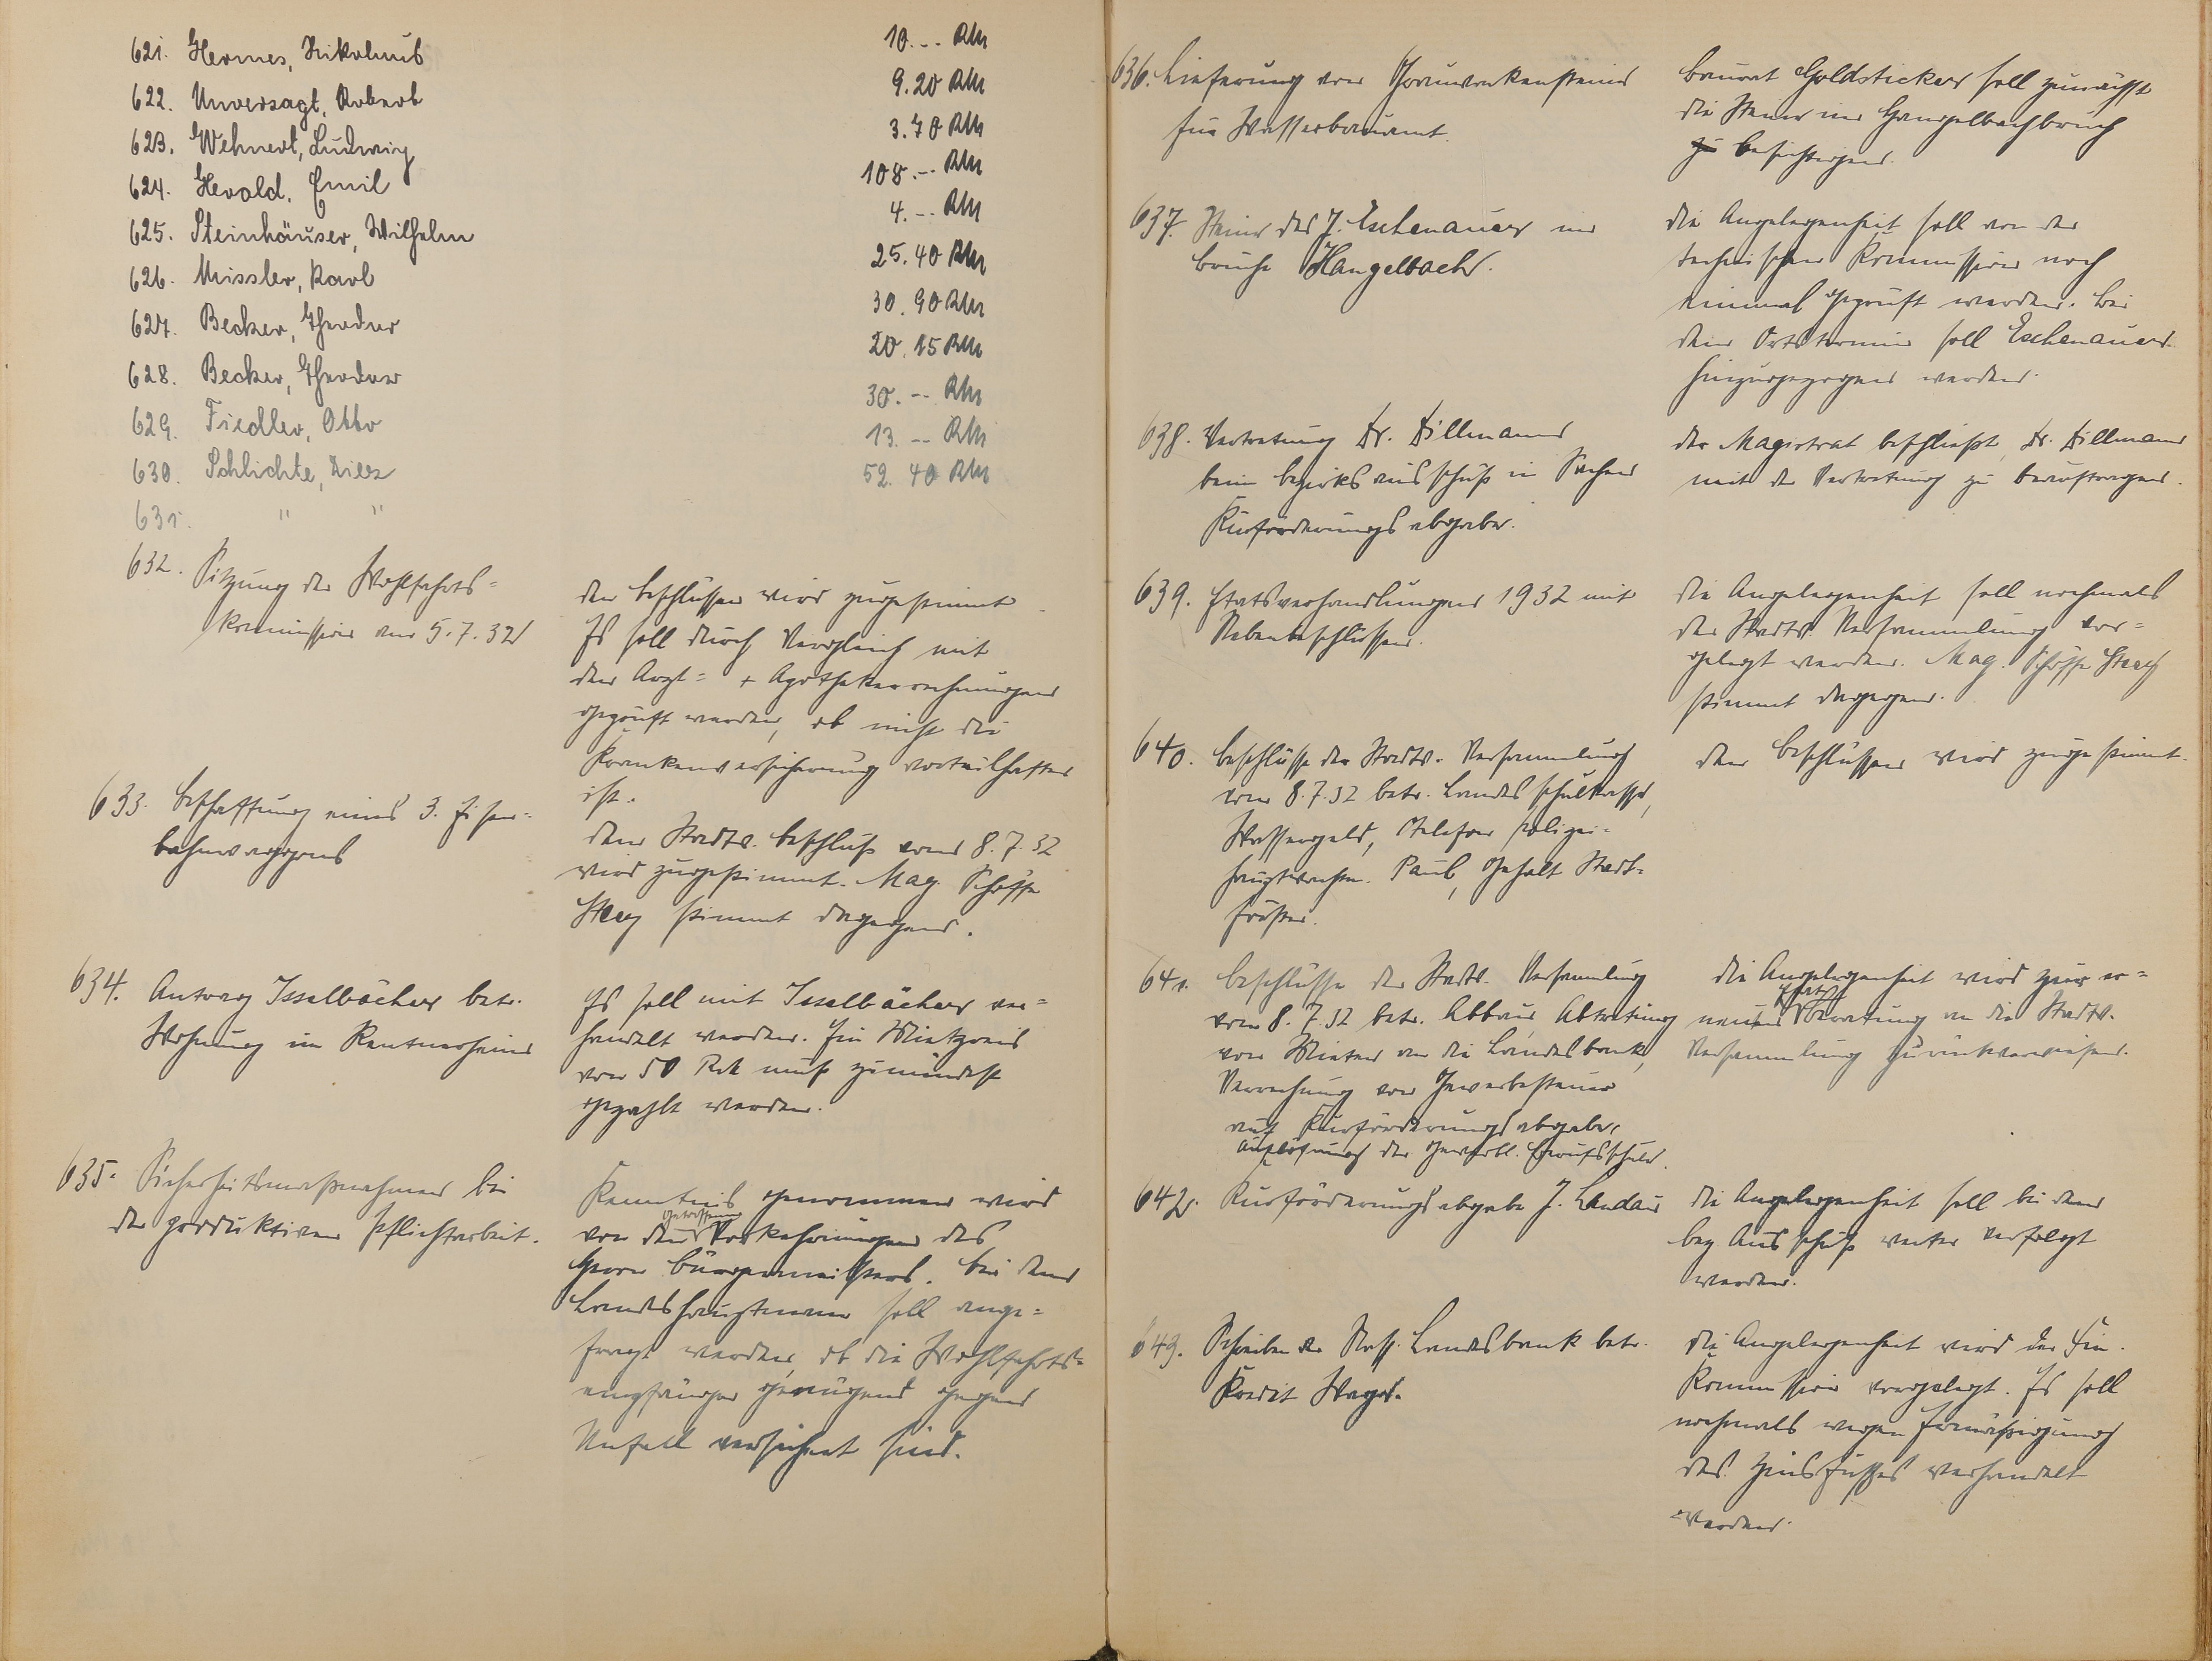 621. Hermes, Nikolaus 10.-- RM
622. Unversagt, Robert 9.20 RM
623. Wehnert, Ludwig 3.70 RM
624. Herold, Emil 108.-- RM
625. Steinhäuser, Wilhelm 4.-- RM
626. Missler, Karl 25.40 RM
627. Becker, Theodor 30.90 RM
628. Becker, Theodor 20.15 RM
629. Fiedler, Otto 30.-- RM
630. Schlichte, Diez 13.-- RM
631. " " 52.40 RM
632. Sitzung der Wohlfahrts=
kommission vom 5.7.32
den Beschlüssen wird zugestimmt
Es soll durch Vergleich mit
den Arzt= + Apothekerrechnungen
geprüft werden, ob nicht die
Krankenversicherung vorteilhafter
ist.
633. Beschaffung eines 3. Eisen=
bahnwagens
dem Stadtv. Beschluß vom 8.7.32
wird zugestimmt. Mag. Schöffe
Steeg stimmt dagegen.
634. Antrag Isselbächer betr.
Wohnung im Rentnerheim
Es soll mit Isselbächer ver=
handelt werden. Ein Mietpreis
von 50 RM muß zumindest
gezahlt werden.
635. Sicherheitsmaßnahmen bei
der produktiven Pflichtarbeit.
Kenntnis genommen wird
getroffenen
von den Vorkehrungen des
Herrn Bürgermeisters. Bei dem
Landeshauptmann soll ange=
fragt werden, ob die Wohlfahrts=
empfänger genügend gegen
Unfall versichert sind.
636. Lieferung von Grauwackensteinen
für Wasserbauamt.
Baurat Goldsticker soll zunächst
die Steine im Hangelbachbruch
zu besichtigen.
637. Steine des J. Eschenauer im
Bruche Hangelbach.
die Angelegenheit soll von der
technischen Kommission noch
einmal geprüft werden. Bei
dem Ortstermin soll Eschenauer
hinzugezogen werden.
638. Vertretung Dr. Dillmann
beim Bezirksausschuß in Sachen
Kurförderungsabgabe.
der Magistrat beschließt, Dr. Dillmann
mit der Vertretung zu beauftragen.
639. Etatsverhandlungen 1932 mit
Nebenbeschlüssen.
die Angelegenheit soll nochmals
der Stadtv. Versammlung vor=
gelegt werden. Mag. Schöffe Steeg
stimmt dagegen.
640. Beschlüsse der Stadtv. Versammlung
vom 8.7.32 betr. Landesschulkasse,
Wassergeld, Telefon Polizei=
hauptwachtm. Paul, Gehalt Stadt=
förster.
den Beschlüssen wird zugestimmt.
641. Beschlüsse der Stadtv. Versammlung
vom 8.7.32 betr. Abbau Abtretung
von Mieten an die Landesbank,
Verrechnung von Gewerbesteuer
auf Kurförderungsabgabe,
Auflösung der Gewerbl. Berufsschule.
die Angelegenheit wird zur er=
neuten Beratung an die Stadtv.
Versammlung zurückverwiesen.
642. Kurförderungsabgabe J. Landau
die Angelegenheit soll bei dem
Bez Ausschuß weiter verfolgt
werden.
643. Schreiben der Nass. Landesbank betr.
Kredit
die Angelegenheit wird der Fin.
Kommission vorgelegt. Es soll
nochmals wegen Ermäßigung
des Zinsfußes verhandelt
werden.